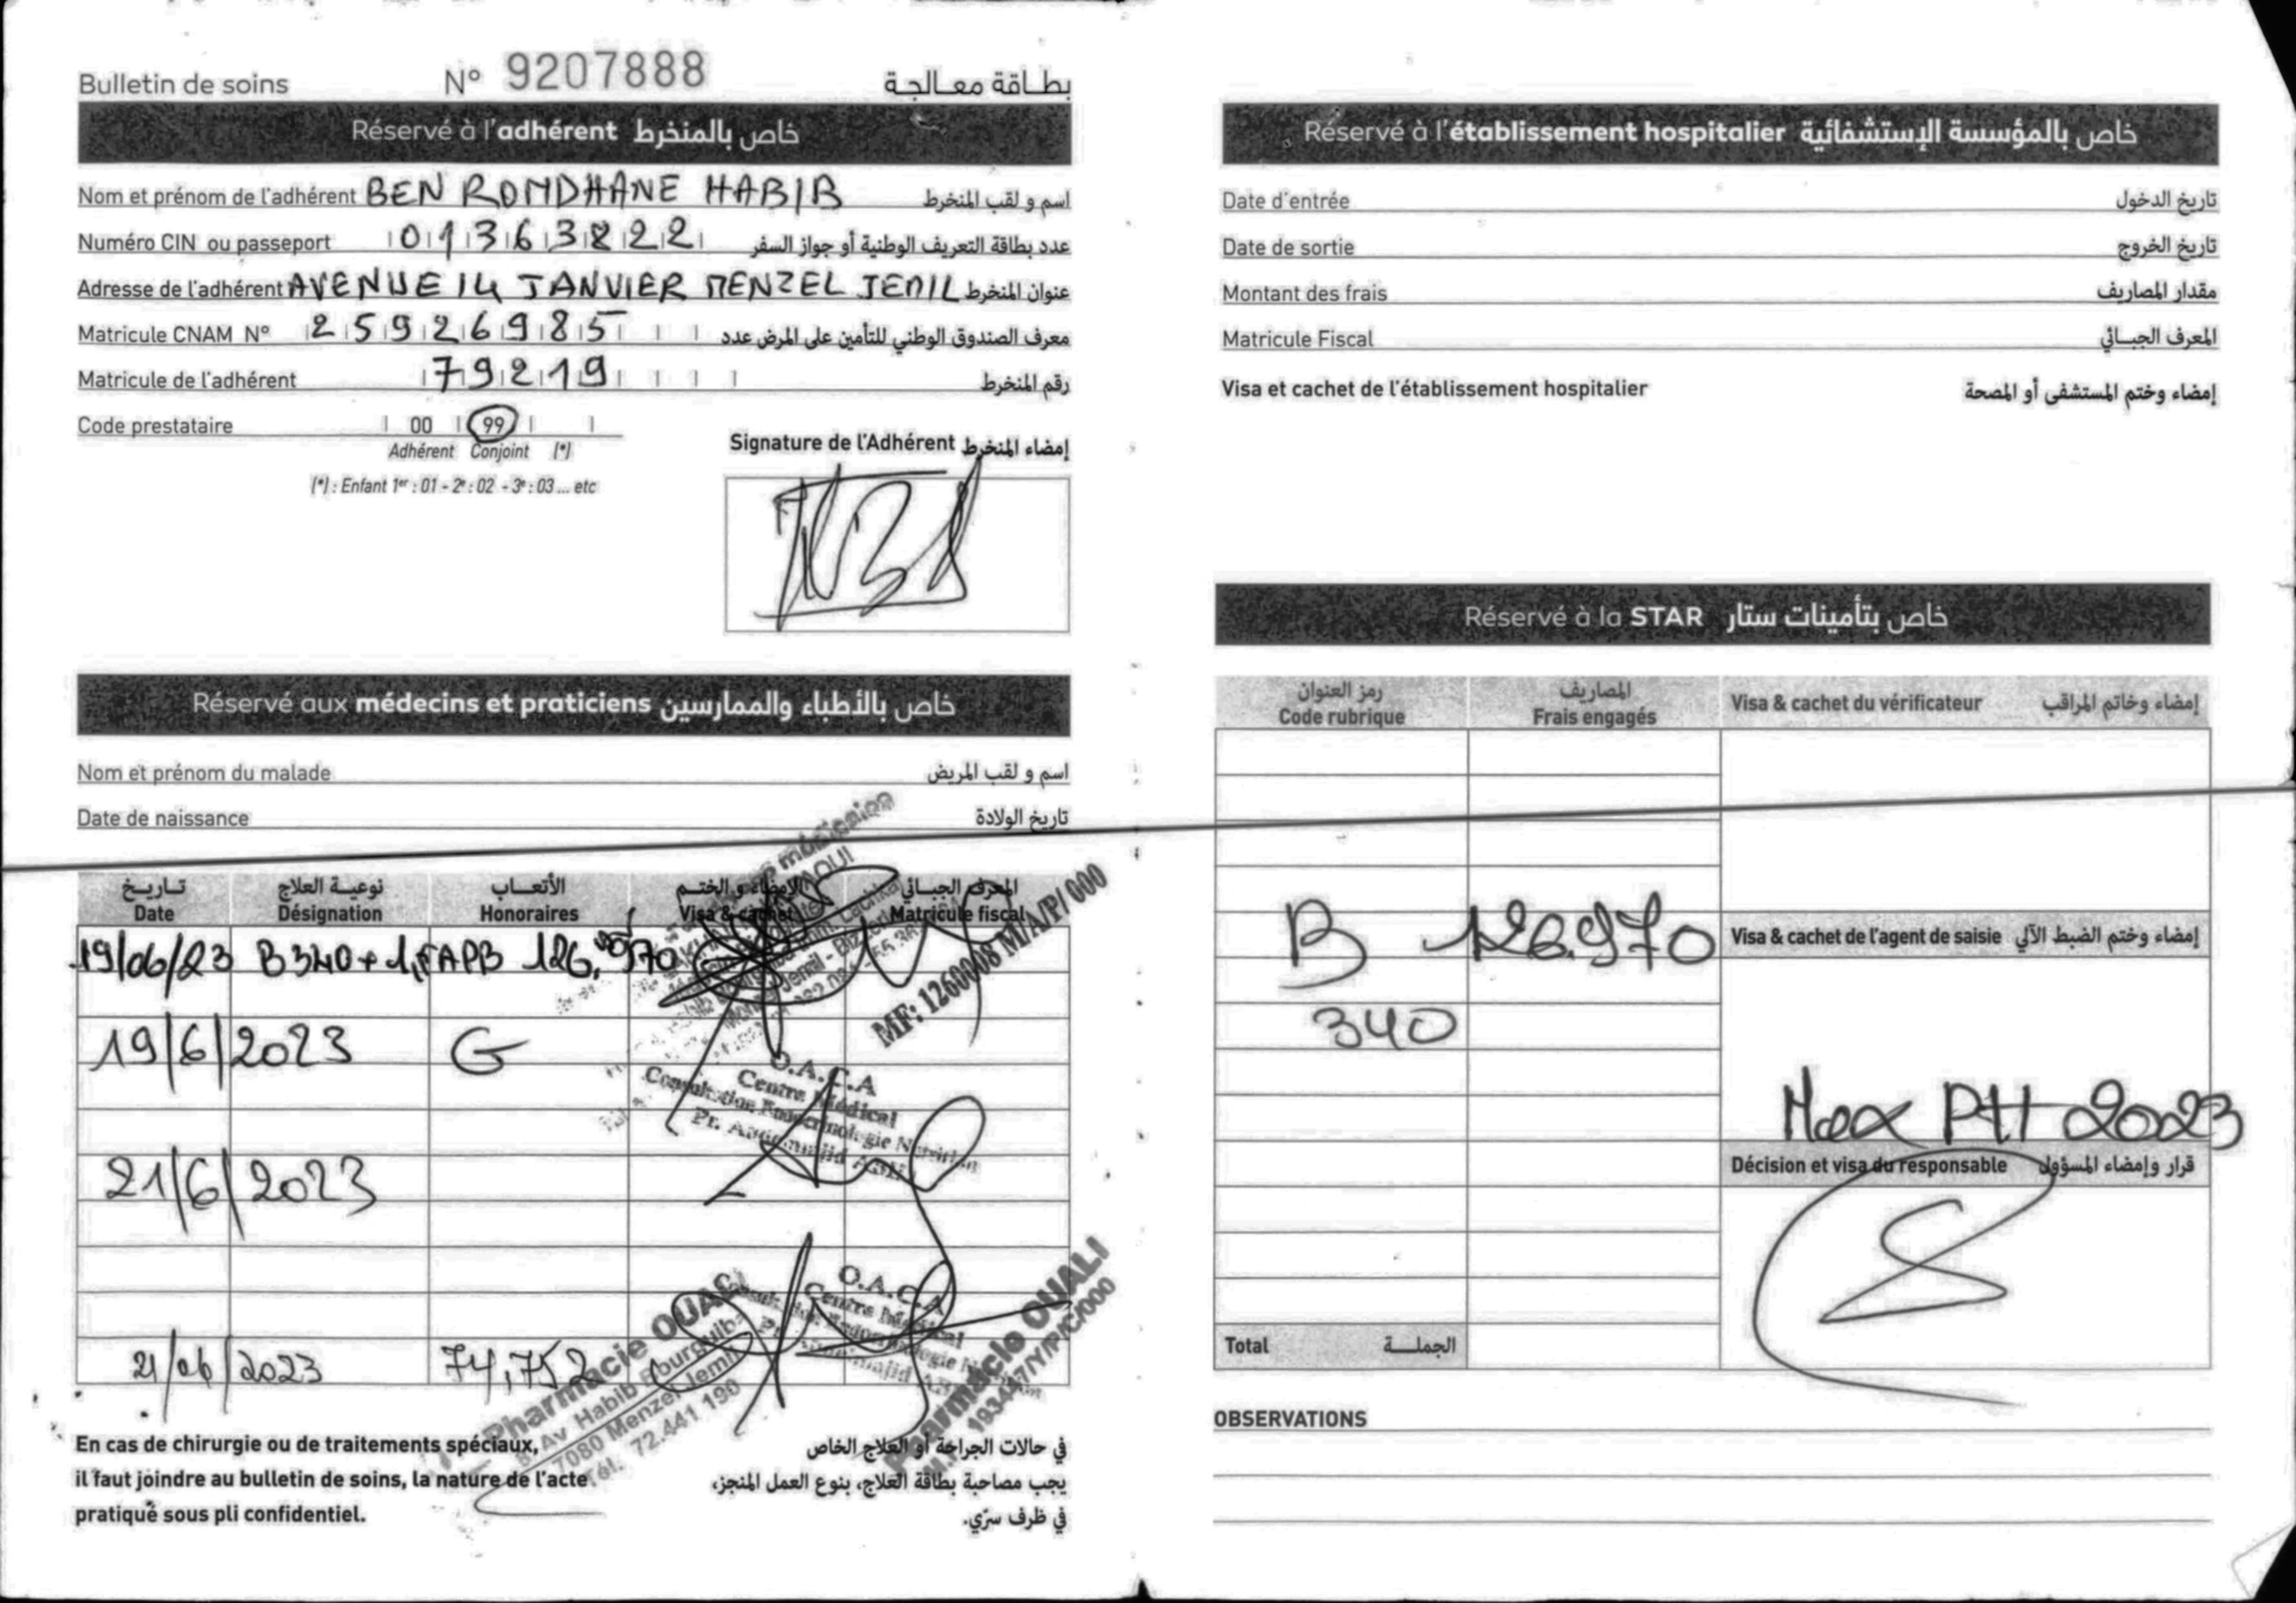 Bulletin de soins N° 9207888 بطاقة معالجة
Réservé à l'adhérent خاص بالمنخرط
Nom et prénom de l'adhérent BEN ROMDHANE HABIB اسم و لقب المنخرط
Numéro CIN ou passeport 01363822 عدد بطاقة التعريف الوطنية أو جواز السفر
Adresse de l'adhérent AVENUE 14 JANVIER MENZEL JEMIL عنوان المنخرط
Matricule CNAM N° 259269885 معرف الصندوق الوطني للتأمين على المرض عدد
Matricule de l'adhérent 79219 رقم المنخرط
Code prestataire 00 99
Adhérent Conjoint (*)
(*) : Enfant 1er : 01 - 2e : 02 - 3e : 03 ... etc
Signature de l'Adhérent إمضاء المنخرط
Réservé aux médecins et praticiens خاص بالأطباء والممارسين
Nom et prénom du malade اسم و لقب المريض
Date de naissance تاريخ الولادة
تاريخ نوعية العلاج الأتعاب الإمضاء و الختم المعرف الجبائي
Date Désignation Honoraires Visa & cachet Matricule fiscal
19/06/23 B340 + 1,5 APB 126,970
MF: 1260008 M/A/P/000
19/6/2023 G
O.A.C.A
Centre Médical
Consultation Endocrinologie Nutrition
21/6/2023
O.A.C.A
Centre Médical
21/06/2023 74,752
Pharmacie OUALI
Av Habib Bourguiba
7080 Menzel Jemil
Tél. 72.441 190
Pharmacie OUALI
En cas de chirurgie ou de traitements spéciaux,
il faut joindre au bulletin de soins, la nature de l'acte
pratiqué sous pli confidentiel.
في حالات الجراحة أو العلاج الخاص
يجب مصاحبة بطاقة العلاج، بنوع العمل المنجز،
في ظرف سرّي.
Réservé à l'établissement hospitalier خاص بالمؤسسة الإستشفائية
Date d'entrée تاريخ الدخول
Date de sortie تاريخ الخروج
Montant des frais مقدار المصاريف
Matricule Fiscal المعرف الجبائي
Visa et cachet de l'établissement hospitalier إمضاء وختم المستشفى أو المصحة
Réservé à la STAR خاص بتأمينات ستار
رمز العنوان المصاريف
Code rubrique Frais engagés
Visa & cachet du vérificateur إمضاء وخاتم المراقب
B 126.970
340
Visa & cachet de l'agent de saisie إمضاء وختم الضبط الآلي
Max PH 2023
Décision et visa du responsable قرار وإمضاء المسؤول
Total الجملة
OBSERVATIONS